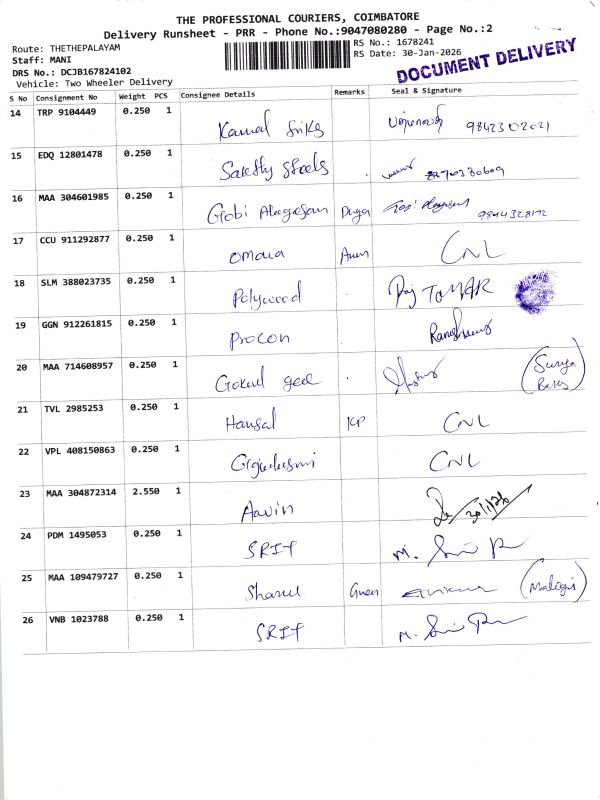 THE PROFESSIONAL COURIERS, COIMBATORE
Delivery Runsheet - PRR - Phone No.:9047080280 - Page No.:2
Route: THETHEPALAYAM
Staff: MANI
DRS No.: DCJB167824102
Vehicle: Two Wheeler Delivery
RS No.: 1678241
RS Date: 30-Jan-2026
DOCUMENT DELIVERY
S No Consignment No Weight PCS Consignee Details Remarks Seal & Signature
14 TRP 9104449 0.250 1 Kamal 9842302021
15 EDQ 12801478 0.250 1
16 MAA 304601985 0.250 1 Gobi Alagesan
17 CCU 911292877 0.250 1 Omaia CNL
18 SLM 388023735 0.250 1 Polywood Raj TOMAR
19 GGN 912261815 0.250 1 Procon
20 MAA 714608957 0.250 1 Gokul (Surya
21 TVL 2985253 0.250 1 Hansal KP CNL
22 VPL 408150863 0.250 1 CNL
23 MAA 304872314 2.550 1 Aavin 30/1/26
24 PDM 1495053 0.250 1 SRIT M.
25 MAA 109479727 0.250 1
26 VNB 1023788 0.250 1 SRIT M.